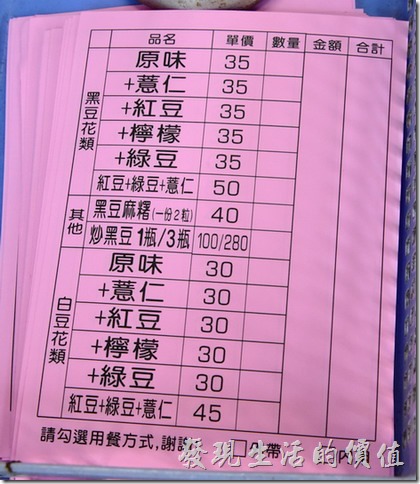 品名 單價 數量 金額 合計
黑豆花類
原味 35
+薏仁 35
+紅豆 35
+檸檬 35
+綠豆 35
紅豆+綠豆+薏仁 50
其他
黑豆麻糬(一份2粒) 40
炒黑豆1瓶/3瓶 100/280
白豆花類
原味 30
+薏仁 30
+紅豆 30
+檸檬 30
+綠豆 30
紅豆+綠豆+薏仁 45
請勾選用餐方式,謝謝 外帶 內用
發現生活的價值